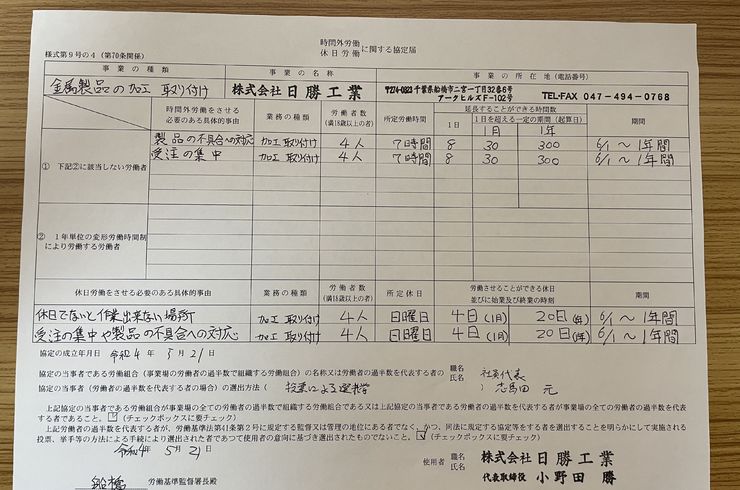 様式第9号の4（第70条関係）
時間外労働
休日労働 に関する協定届
事業の種類 事業の名称 事業の所在地（電話番号）
金属製品の加工 取り付け 株式会社 日勝工業 〒274-0823 千葉県船橋市二宮一丁目32番6号
アークヒルズF-102号 TEL・FAX 047-494-0768
時間外労働をさせる
必要のある具体的事由 業務の種類 労働者数
（満18歳以上の者） 所定労働時間 延長することができる時間数 期間
1日 1日を超える一定の期間（起算日）
1月 1年
① 下記②に該当しない労働者
製品の不具合への対応 加工 取り付け 4人 7時間 8 30 300 6/1 〜 1年間
受注の集中 加工 取り付け 4人 7時間 8 30 300 6/1 〜 1年間
② 1年単位の変形労働時間制
により労働する労働者
休日労働をさせる必要のある具体的事由 業務の種類 労働者数
（満18歳以上の者） 所定休日 労働させることができる休日
並びに始業及び終業の時刻 期間
休日でないと作業出来ない場所 加工 取り付け 4人 日曜日 4日（1月） 20日（年） 6/1 〜 1年間
受注の集中や製品の不具合への対応 加工 取り付け 4人 日曜日 4日（1月） 20日（年） 6/1 〜 1年間
協定の成立年月日 令和4年 5月 21日
協定の当事者である労働組合（事業場の労働者の過半数で組織する労働組合）の名称又は労働者の過半数を代表する者の 職名 社員代表
氏名 志馬田 元
協定の当事者（労働者の過半数を代表する者の場合）の選出方法（ 投票による選挙 ）
上記協定の当事者である労働組合が事業場の全ての労働者の過半数で組織する労働組合である又は上記協定の当事者である労働者の過半数を代表する者が事業場の全ての労働者の過半数を代表す
る者であること。☑（チェックボックスに要チェック）
上記労働者の過半数を代表する者が、労働基準法第41条第2号に規定する監督又は管理の地位にある者でなく、かつ、同法に規定する協定等をする者を選出することを明らかにして実施される
投票、挙手等の方法による手続により選出された者であつて使用者の意向に基づき選出されたものでないこと。☑（チェックボックスに要チェック）
令和4年 5月 21日
使用者 職名
氏名 株式会社 日勝工業
代表取締役 小野田 勝
船橋 労働基準監督署長殿